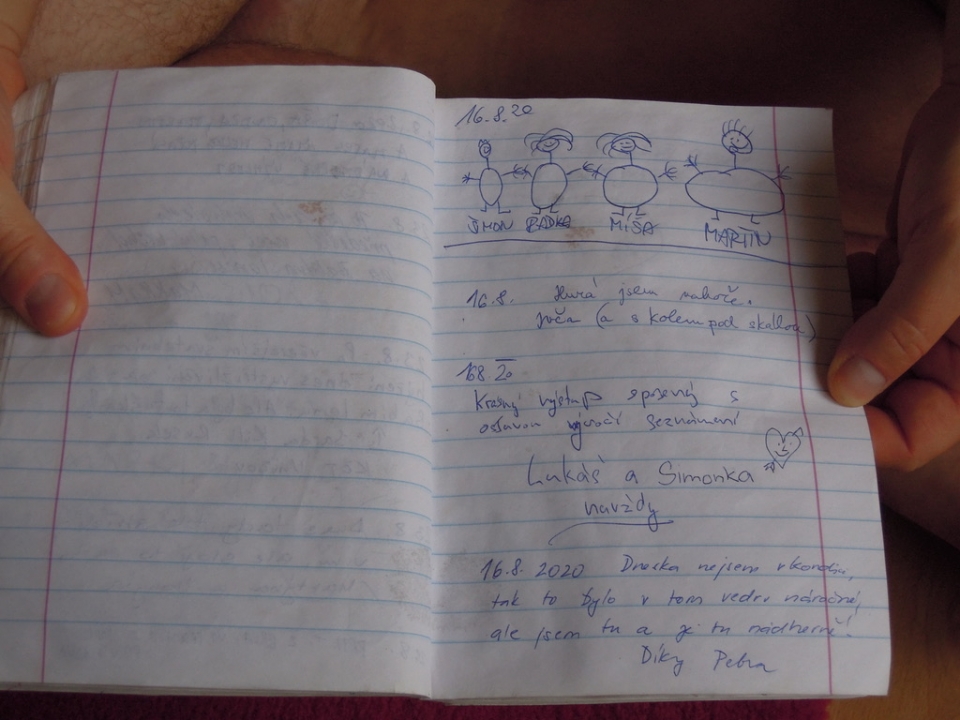 16.8.20
ŠIMON RADKA MÍŠA MARTIN
16.8. Hurá jsem nahoře.
(a s kolem pod skalou)
16 8 20
Krásný výstup spojený s
oslavou výročí seznámení
Lukáš a Simonka
navždy
16.8. 2020 Dneska nejsem v kondici,
tak to bylo v tom vedru náročné,
ale jsem tu a je tu nádherně!
Díky Petra